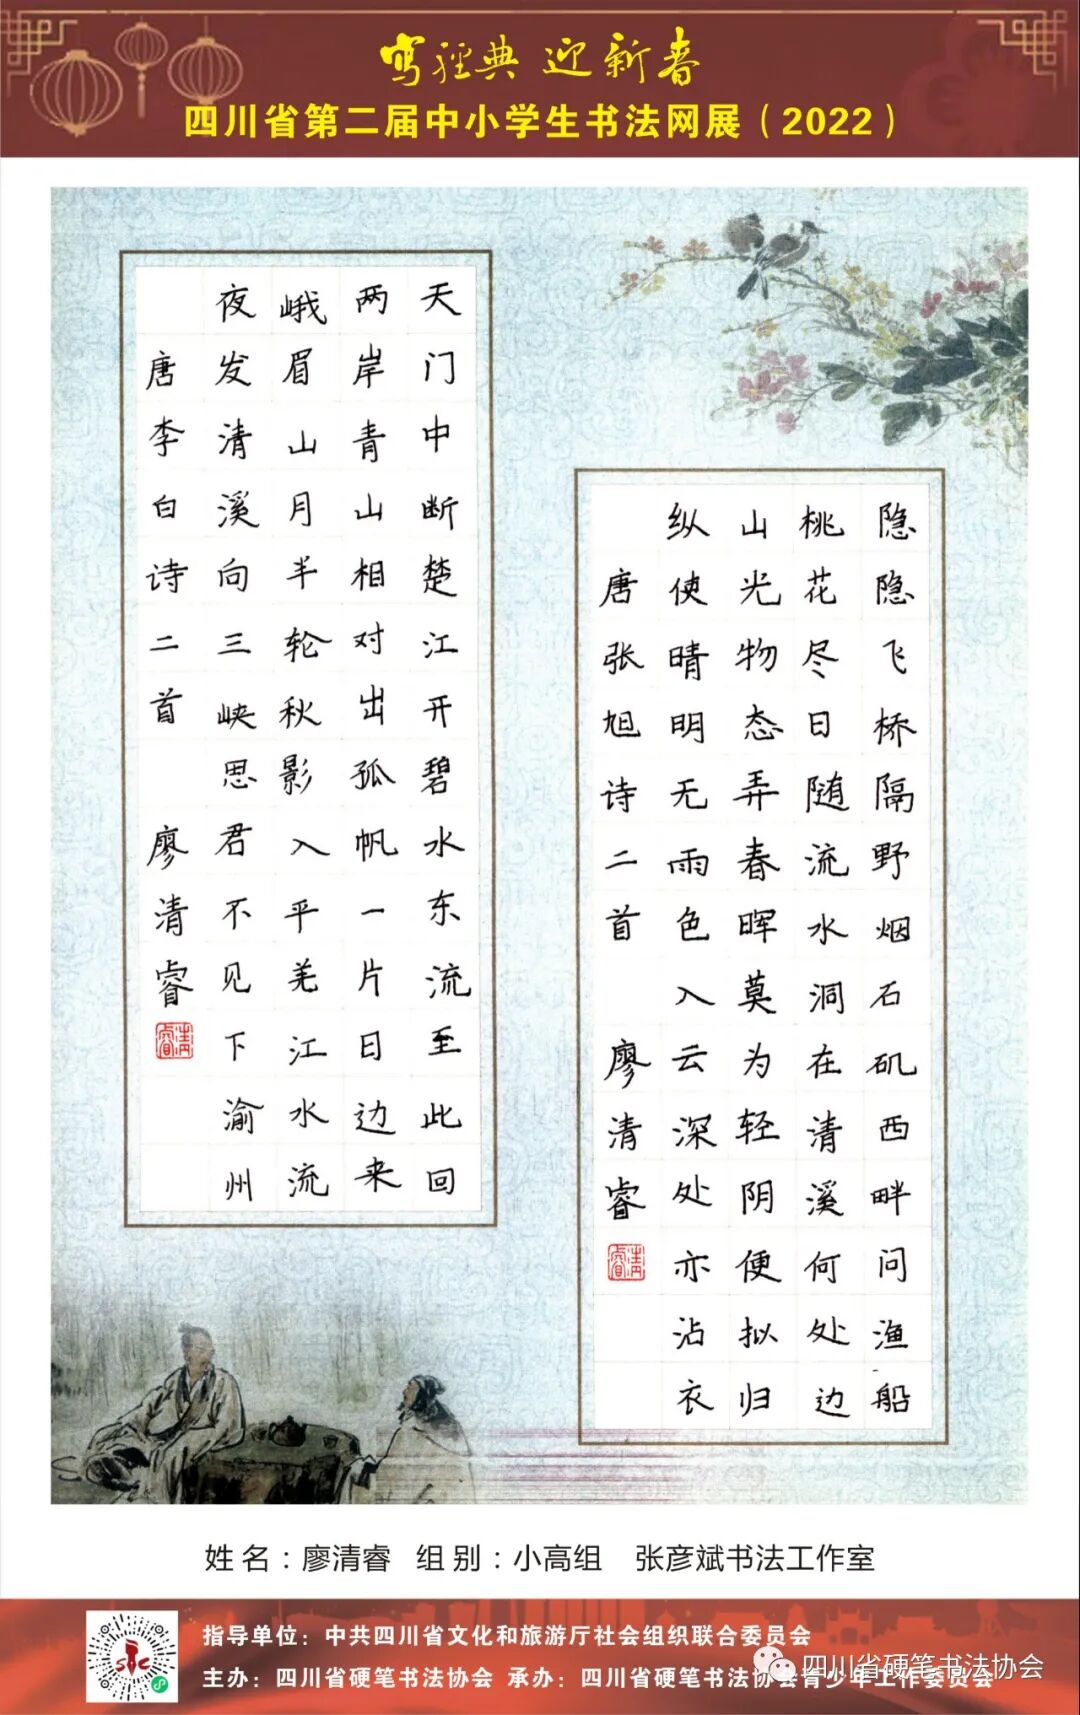 写经典 迎新春
四川省第二届中小学生书法网展（2022）
隐隐飞桥隔野烟石矶西畔问渔船
桃花尽日随流水洞在清溪何处边
山光物态弄春晖莫为轻阴便拟归
纵使晴明无雨色入云深处亦沾衣
唐张旭诗二首 廖清睿
清睿
天门中断楚江开碧水东流至此回
两岸青山相对出孤帆一片日边来
峨眉山月半轮秋影入平羌江水流
夜发清溪向三峡思君不见下渝州
唐李白诗二首 廖清睿
清睿
姓名：廖清睿 组别：小高组 张彦斌书法工作室
指导单位：中共四川省文化和旅游厅社会组织联合委员会
主办：四川省硬笔书法协会 承办：四川省硬笔书法协会青少年工作委员会
四川省硬笔书法协会